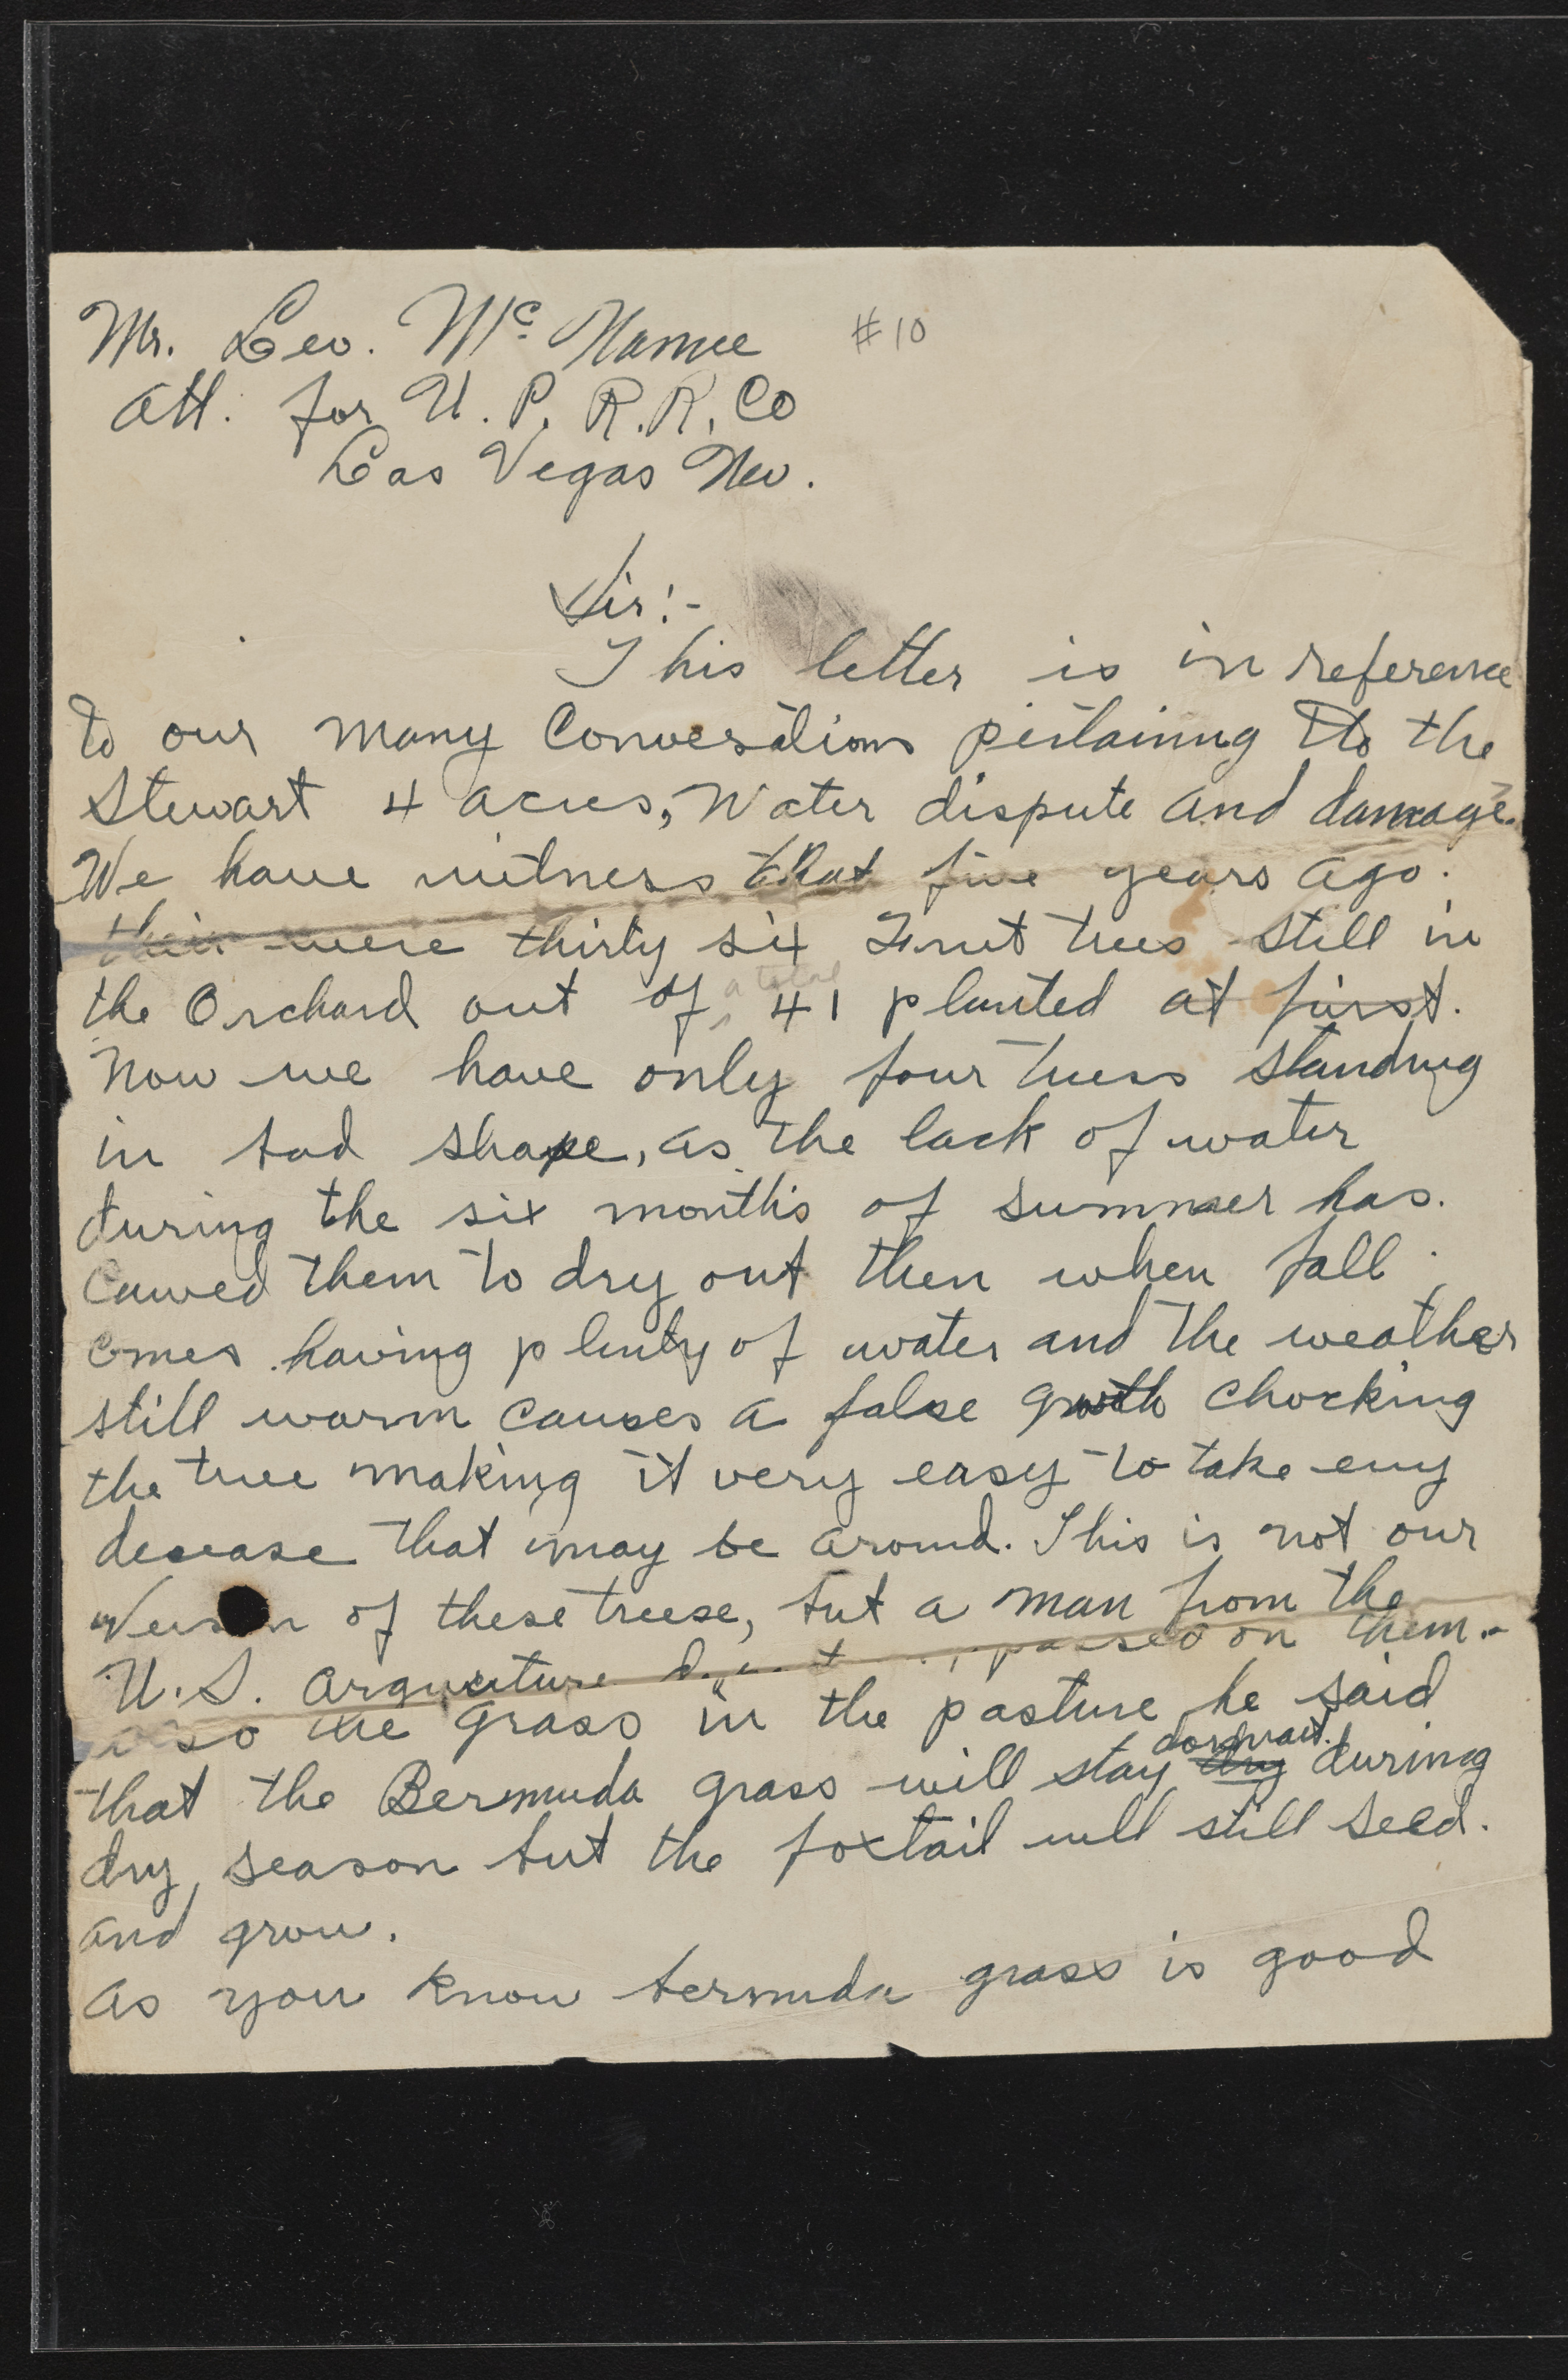 Mr. Leo. Mc Namee #10
Att. for U. P. R. R. Co
Las Vegas Nev.
Sir:-
This letter is in reference
to our many Conversations pertaining to the
Stewart 4 acres, Water dispute and damage.
We have witness that five years ago.
their were thirty six Fruit trees still in
the Orchard out of a total 41 planted at first.
Now we have only four trees standing
in bad shape, as the lack of water
during the six months of summer has.
Caused them to dry out then when fall
comes having plenty of water and the weather
still warm causes a false growth chocking
the tree making it very easy to take eny
desease that may be around. This is not our
of these treese, but a man from the
U.S. passed on them.-
also the grass in the pasture he said
that the Bermuda grass will stay dormant. dry during
dry season but the foxtail will still seed.
and grow.
as you know bermuda grass is good